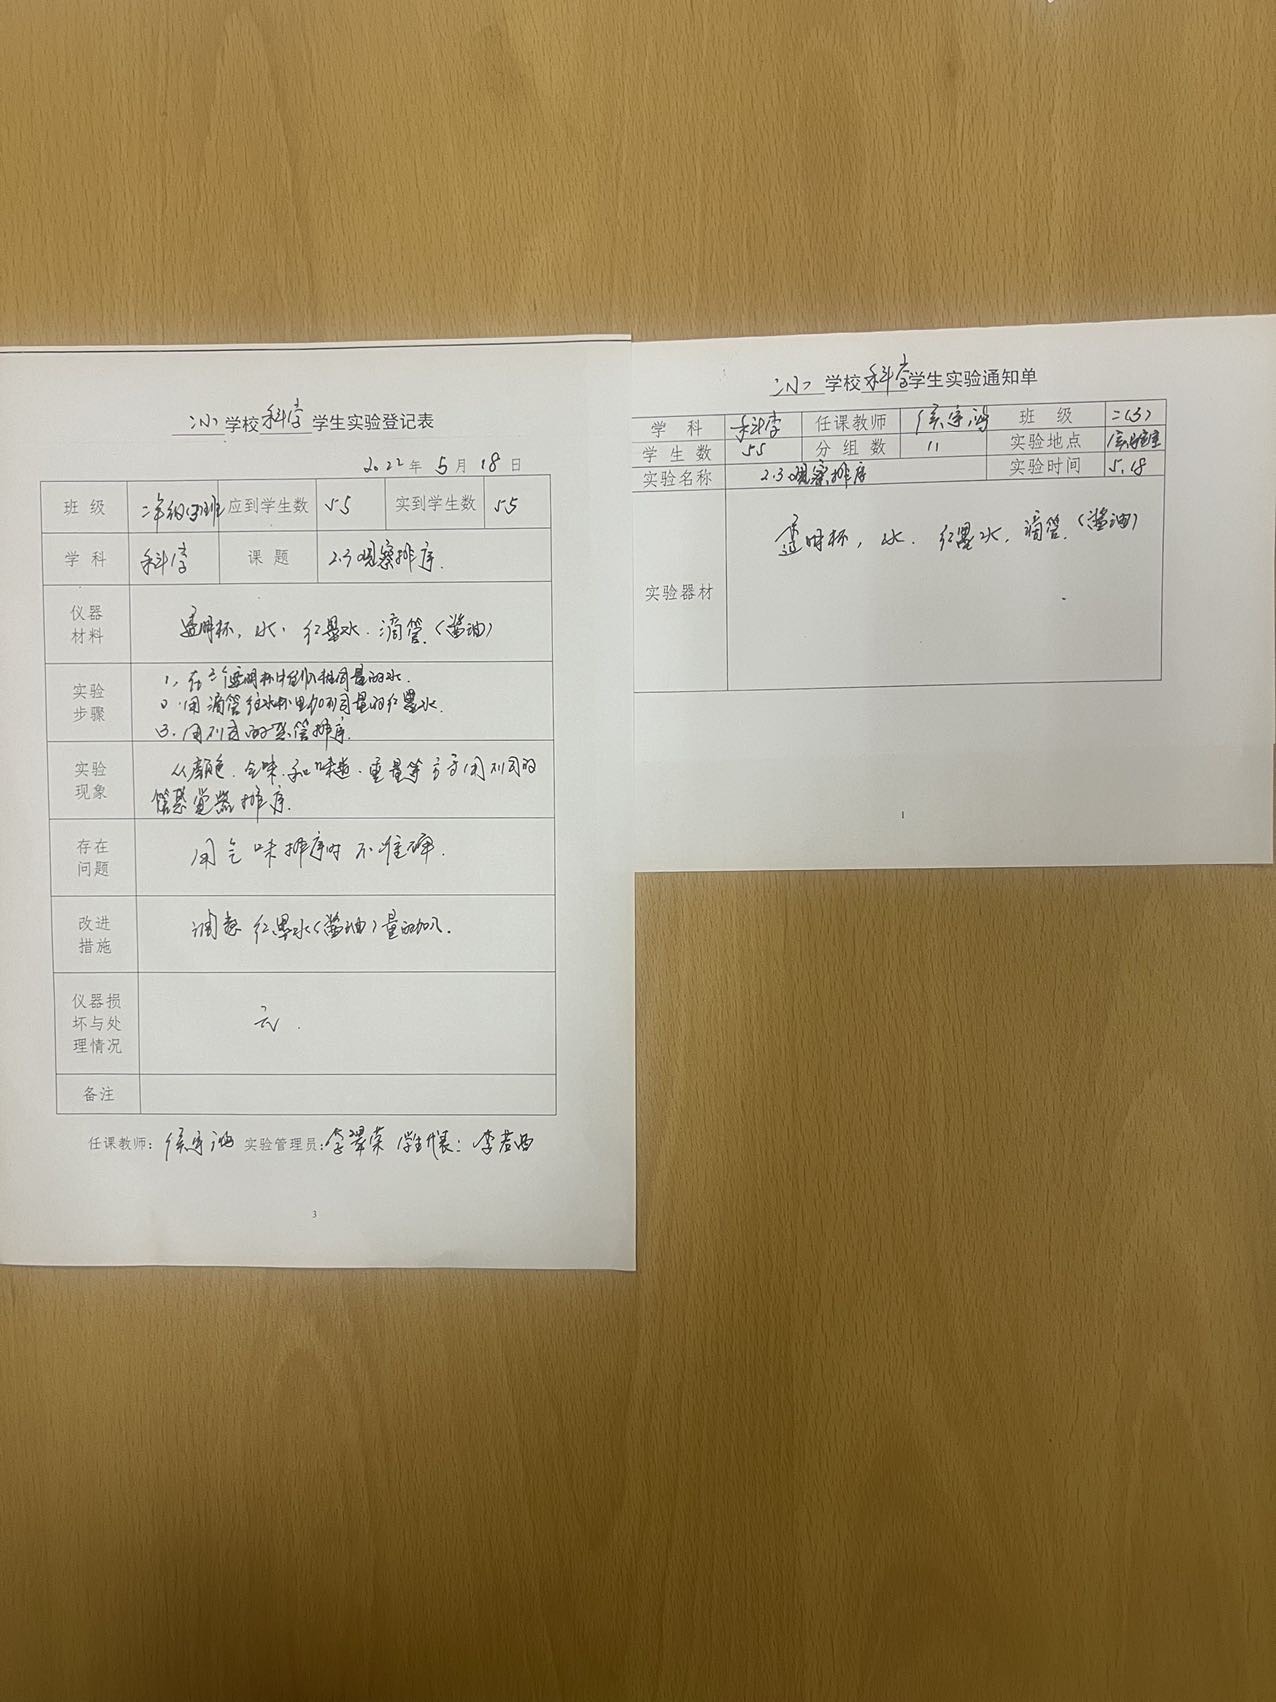 学校科学学生实验登记表
2022年5月18日
班级 二年级 班 应到学生数 55 实到学生数 55
学科 科学 课题 2.3观察排序.
仪器
材料
透明杯，水．红墨水．滴管（酱油）
实验
步骤
1、在三个透明杯中倒入相同量的水．
2．用滴管往水杯里加不同量的红墨水．
3．用不同的感官排序．
实验
现象
从颜色．气味．和味道．重量等方面用不同的
感觉器 排序．
存在
问题
用气味排序时不准确．
改进
措施
调整红墨水（酱油）量的加入．
仪器损
坏与处
理情况
无．
备注
任课教师： 实验管理员：李翠荣 学生代表：李
3
学校科学学生实验通知单
学科 科学 任课教师 班级 二(3)
学生数 55 分组数 11 实验地点 实验室
实验名称 2.3观察排序 实验时间 5.18
实验器材
透明杯，水．红墨水．滴管．（酱油）
1